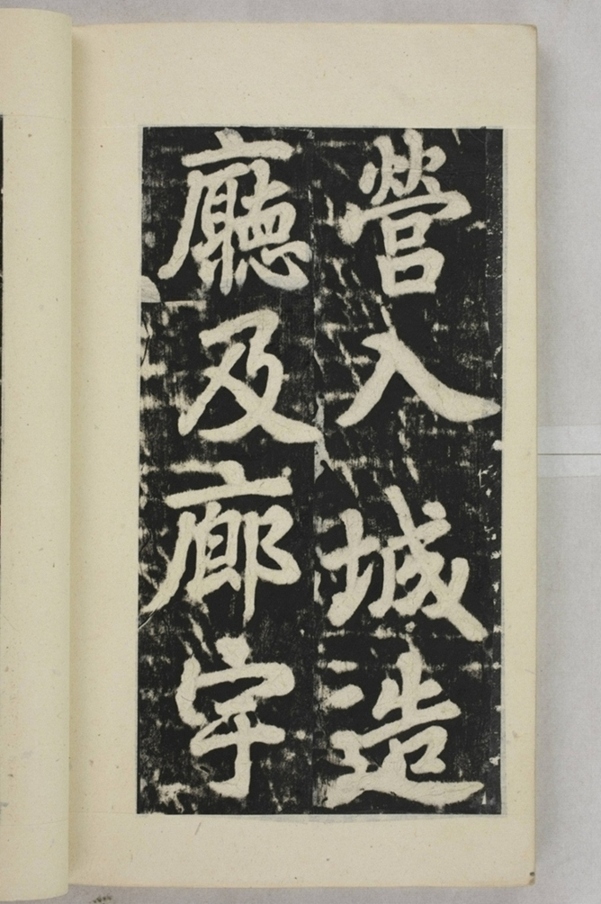 營入城造
廳及廊宇